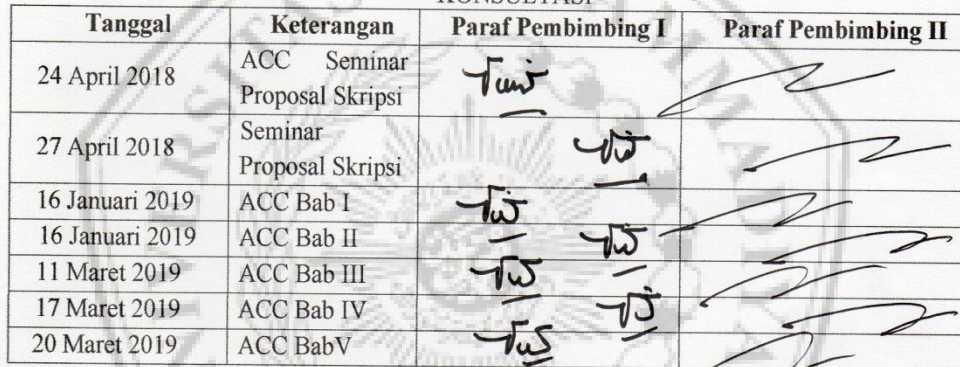 KONSULTASI
Tanggal Keterangan Paraf Pembimbing I Paraf Pembimbing II
24 April 2018 ACC Seminar
Proposal Skripsi
27 April 2018 Seminar
Proposal Skripsi
16 Januari 2019 ACC Bab I
16 Januari 2019 ACC Bab II
11 Maret 2019 ACC Bab III
17 Maret 2019 ACC Bab IV
20 Maret 2019 ACC BabV